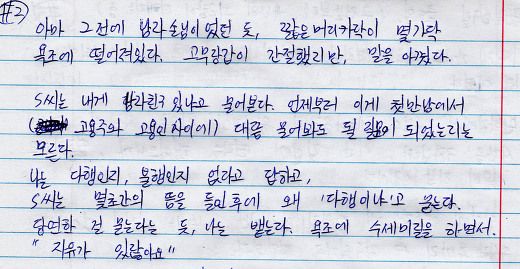 #2)
아마 그전에 남자손님이 있었던 듯, 짧은 머리카락이 몇가닥
욕조에 떨어져있다. 고무장갑이 간절했지만, 말을 아꼈다.
S씨는 내게 남자친구 있냐고 물어본다. 언제부터 이게 첫만남에서
( 고용주와 고용인사이에) 대뜸 물어봐도 될 질문이 되었는지는
모른다.
나는 다행인지, 불행인지 없다고 답하고,
S씨는 몇초간의 뜸을 들인후에 왜 '다행이냐'고 묻는다.
당연한 걸 묻는다는 듯, 나는 뱉는다. 욕조에 수세미질을 하면서.
" 자유가 있잖아요"